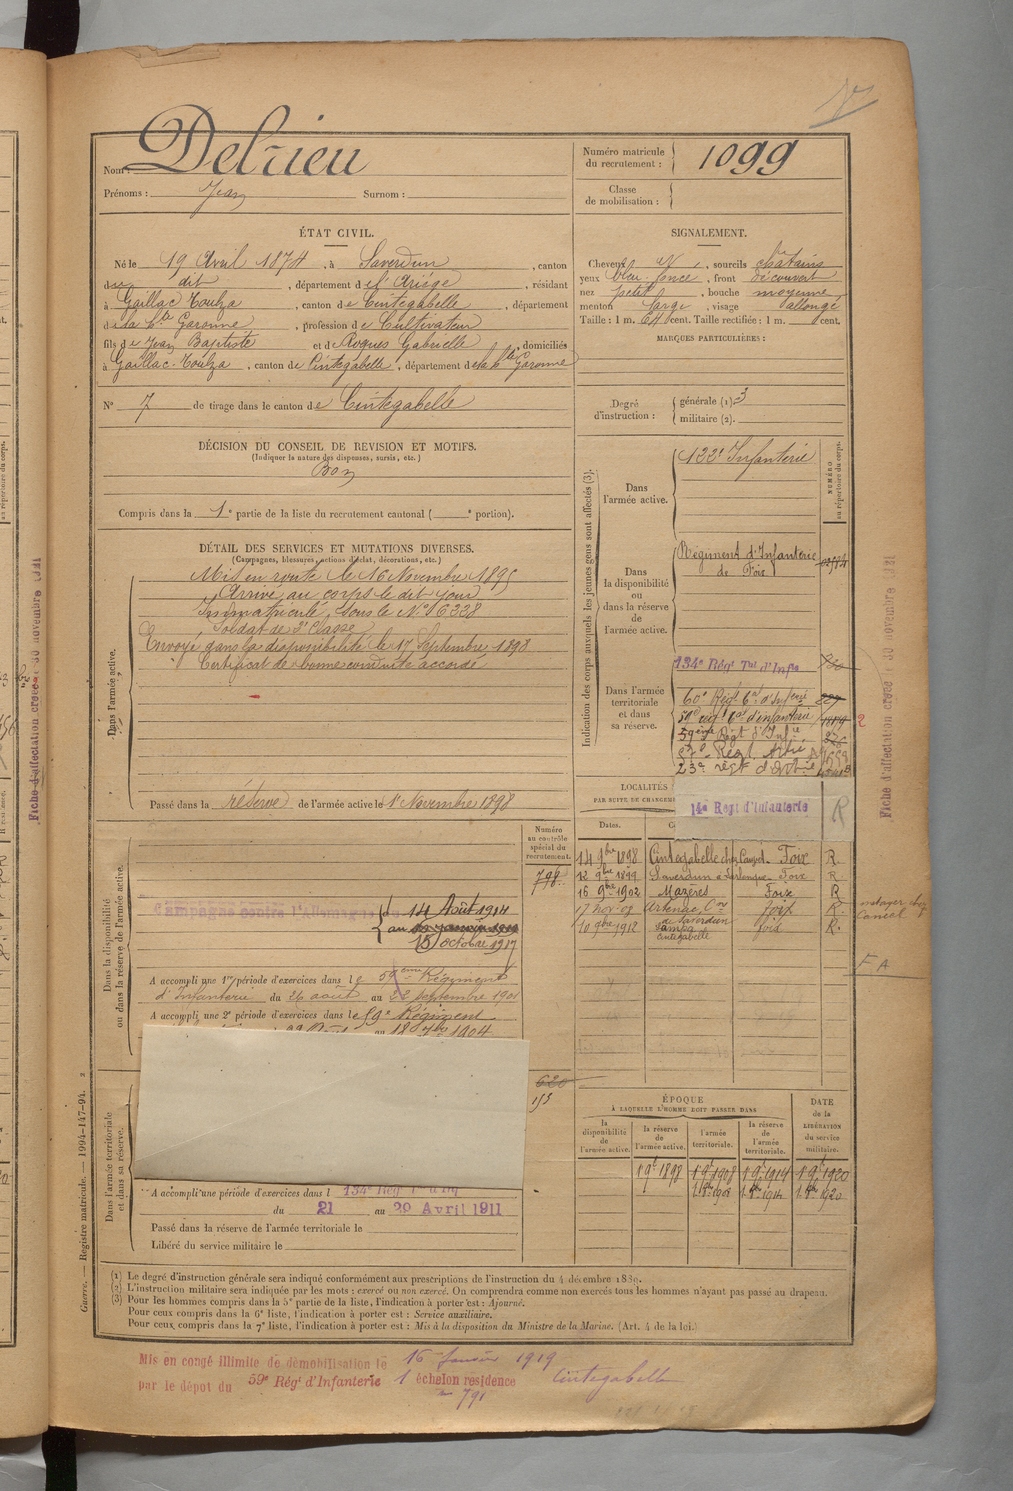 Nom : Delrieu
Prénoms : Jean Surnom :
Numéro matricule
du recrutement : 1099
Classe
de mobilisation :
ÉTAT CIVIL.
Né le 19 Avril 1874, à Saverdun, canton
dudit, département de l'Ariége, résidant
à Gaillac Toulza, canton de Cintegabelle, département
de la Hte Garonne, profession de Cultivateur
fils de Jean Baptiste et de Roques Gabrielle, domiciliés
à Gaillac-Toulza, canton de Cintegabelle, département de la Hte Garonne
N° 7 de tirage dans le canton de Cintegabelle
SIGNALEMENT.
Cheveux N, sourcils châtains
yeux bleu foncé, front découvert
nez petit, bouche moyenne
menton large, visage allongé
Taille : 1 m. 64 cent. Taille rectifiée : 1 m. cent.
MARQUES PARTICULIÈRES :
Degré
d'instruction :
générale (1). 3
militaire (2).
DÉCISION DU CONSEIL DE REVISION ET MOTIFS.
(Indiquer la nature des dispenses, sursis, etc.)
Bon
Compris dans la 1e partie de la liste du recrutement cantonal ( e portion).
DÉTAIL DES SERVICES ET MUTATIONS DIVERSES.
(Campagnes, blessures, actions d'éclat, décorations, etc.)
Dans l'armée active.
Mis en route le 16 Novembre 1895
Arrivé au corps le dit jour
Immatriculé sous le N° 6338
Soldat de 2e Classe
Envoyé dans la disponibilité le 17 Septembre 1898
Certificat de bonne conduite accordé
Passé dans la réserve de l'armée active le 1r Novembre 1898
Indication des corps auxquels les jeunes gens sont affectés (3).
NUMÉRO
au répertoire du corps.
Dans
l'armée active.
122e Infanterie
Dans
la disponibilité
ou
dans la réserve
de
l'armée active.
Régiment d'Infanterie
de Foix
Dans l'armée
territoriale
et dans
sa réserve.
134e Régt Tal d'Infie
14e Regt d'Infanterie
R
Fiche d'affectation créée le 30 novembre 1921
LOCALITÉS
PAR SUITE DE CHANGEM
Dates.
14 9bre 1898 Cintegabelle Foix R.
12 9bre 1899 Saverdun Foix R.
16 9bre 1902 Mazères Foix R
17 Nov 09 Foix R.
10 9bre 1912 Cintegabelle Foix R.
F A
Numéro
au contrôle
spécial du
recrutement.
798
Dans la disponibilité
ou dans la réserve de l'armée active.
Campagne contre l'Allemagne du 14 Août 1914
au
15 Octobre 1917
A accompli une 1re période d'exercices dans le 59ème Régiment
d'Infanterie du 26 août au 22 septembre 1901
A accompli une 2e période d'exercices dans le 59e Régiment
au 18 7bre 1904
620
153
Dans l'armée territoriale
et dans sa réserve.
A accompli une période d'exercices dans l 134e Régt
du 21 au 29 Avril 1911
Passé dans la réserve de l'armée territoriale le
Libéré du service militaire le
ÉPOQUE
À LAQUELLE L'HOMME DOIT PASSER DANS
DATE
de la
LIBÉRATION
du service
militaire.
la
disponibilité
de
l'armée active.
la réserve
de
l'armée active.
l'armée
territoriale.
la réserve
de
l'armée
territoriale.
1 9e 1898 1 9e 1908 1 9e 1914 1 9e 1920
Guerre. — Registre matricule. — 1994-147-94.
(1) Le degré d'instruction générale sera indiqué conformément aux prescriptions de l'instruction du 4 décembre 1889.
(2) L'instruction militaire sera indiquée par les mots : exercé ou non exercé. On comprendra comme non exercés tous les hommes n'ayant pas passé au drapeau.
(3) Pour les hommes compris dans la 5e partie de la liste, l'indication à porter est : Ajourné.
Pour ceux compris dans la 6e liste, l'indication à porter est : Service auxiliaire.
Pour ceux compris dans la 7e liste, l'indication à porter est : Mis à la disposition du Ministre de la Marine. (Art. 4 de la loi.)
Mis en congé illimité de démobilisation le 16 Janvier 1919
par le dépot du 59e Régt d'Infanterie 1 échelon residence Cintegabelle
n° 791